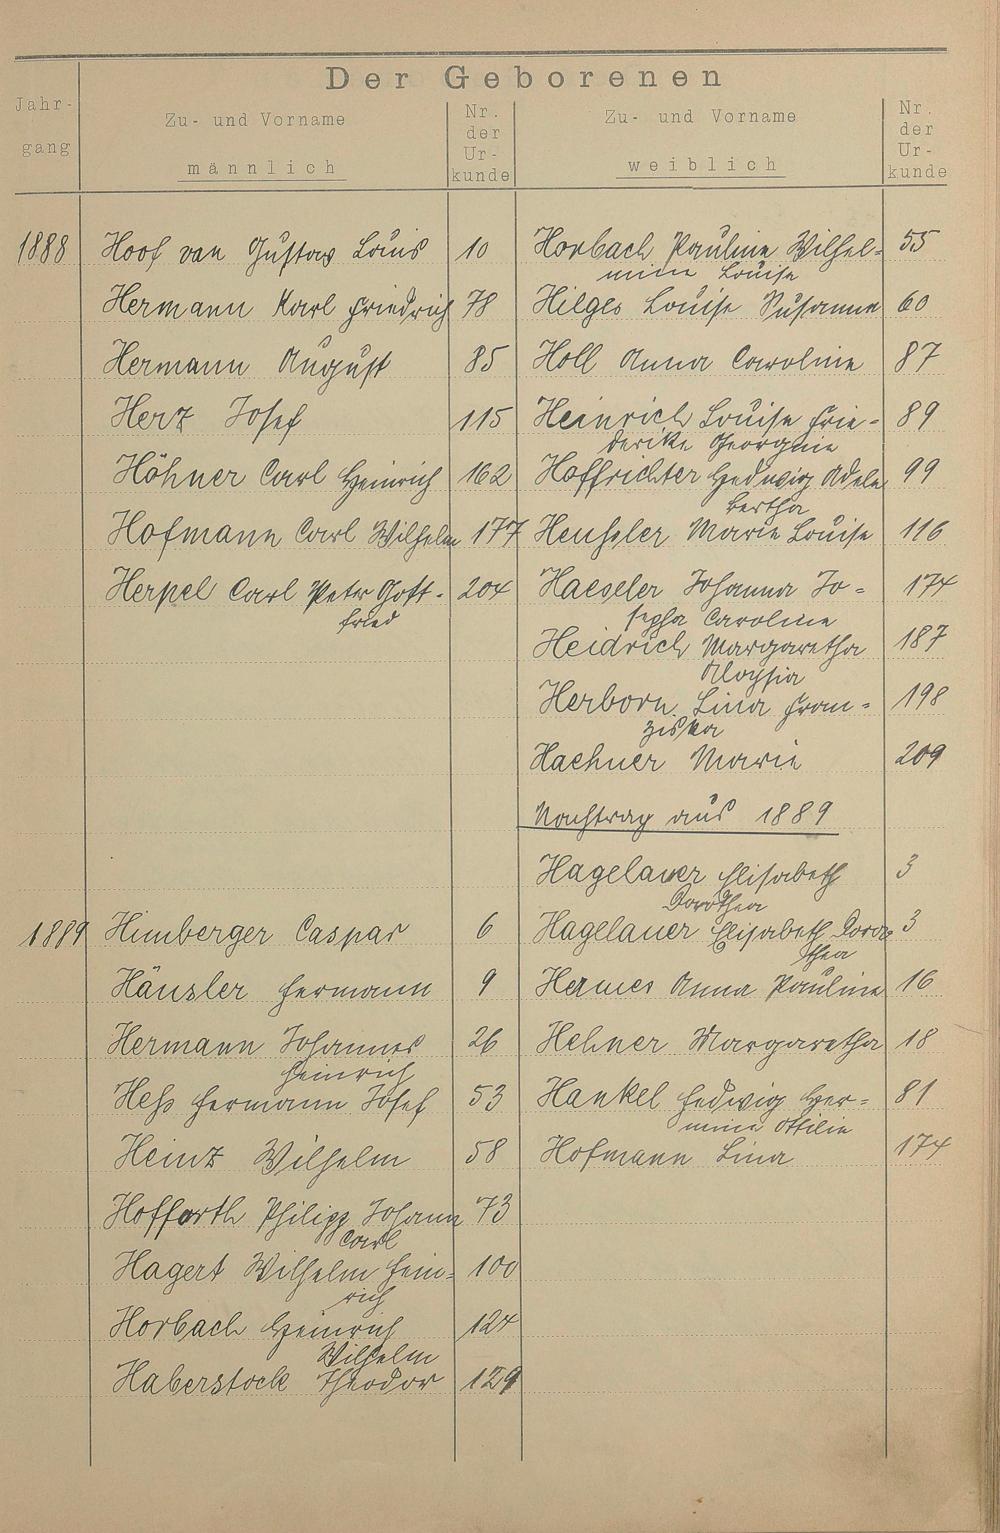 Der Geborenen
Jahr-
gang
Zu- und Vorname
männlich
Nr.
der
Ur-
kunde
Zu- und Vorname
weiblich
Nr.
der
Ur-
kunde
1888 Hoof van Gustav Louis 10 Horbach Pauline Wilhel-
mine Louise 55
Hermann Karl Friedrich 78 Hilges Louise Susanna 60
Hermann August 85 Holl Anna Caroline 87
Herz Josef 115 Heinrich Louise Frie-
derike Georgine 89
Höhner Carl Heinrich 162 Hoffrichter Hedwig Adele
Bertha 99
Hofmann Carl Wilhelm 177 Henseler Marie Louise 116
Herpel Carl Peter Gott-
fried 204 Haeseler Johanna Jo-
sepha Caroline 174
Heidrich Margaretha
Aloysia 187
Herborn Lina Fran-
ziska 198
Haehner Marie 209
Nachtrag aus 1889
Hagelauer Elisabeth
Dorothea 3
1889 Himberger Caspar 6 Hagelauer Elisabeth Doro-
thea 3
Häusler Hermann 9 Hermes Anna Pauline 16
Hermann Johannes
Heinrich 26 Hehner Margaretha 18
Heß Hermann Josef 53 Hankel Hedwig Her-
mine Ottilie 81
Heinz Wilhelm 58 Hofmann Lina 174
Hoffarth Philipp Johann
Carl 73
Hagert Wilhelm Hein-
rich 100
Horbach Heinrich
Wilhelm 124
Haberstock Theodor 129